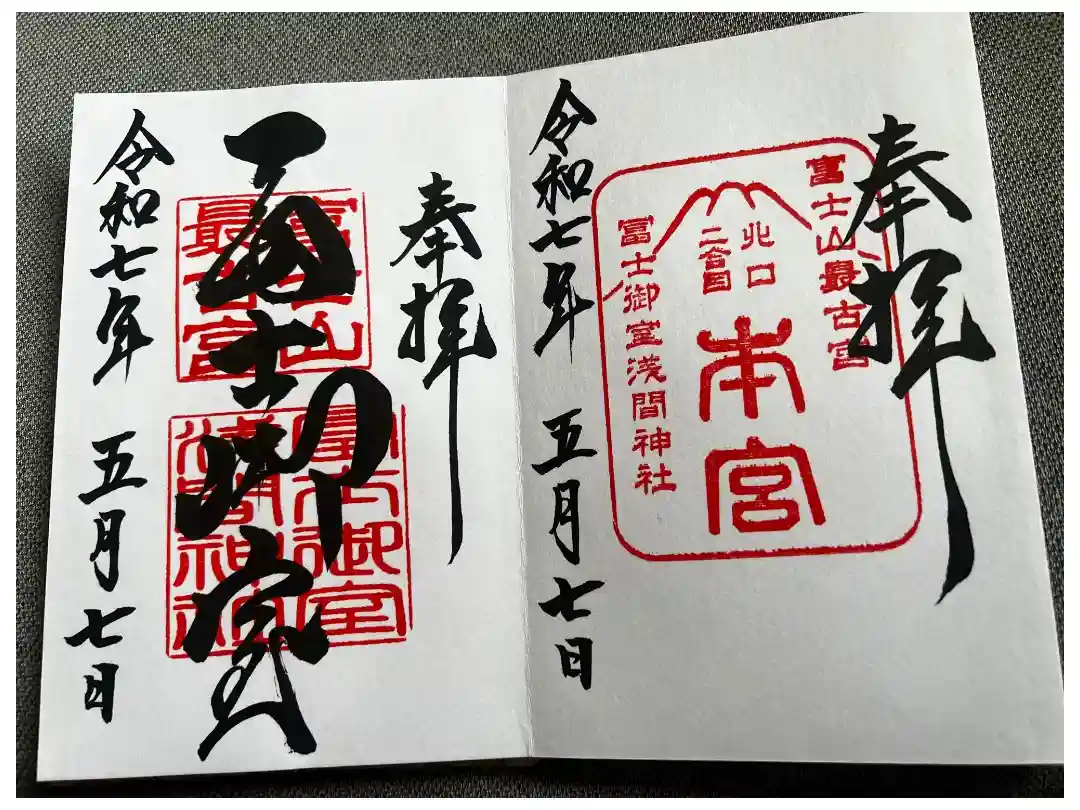 奉拝
富士山最古宮
北口
二合目
本宮
富士御室浅間神社
令和七年 五月七日
奉拝
富士山
最古宮
富士御室
冨士御室
浅間神社
令和七年 五月七日